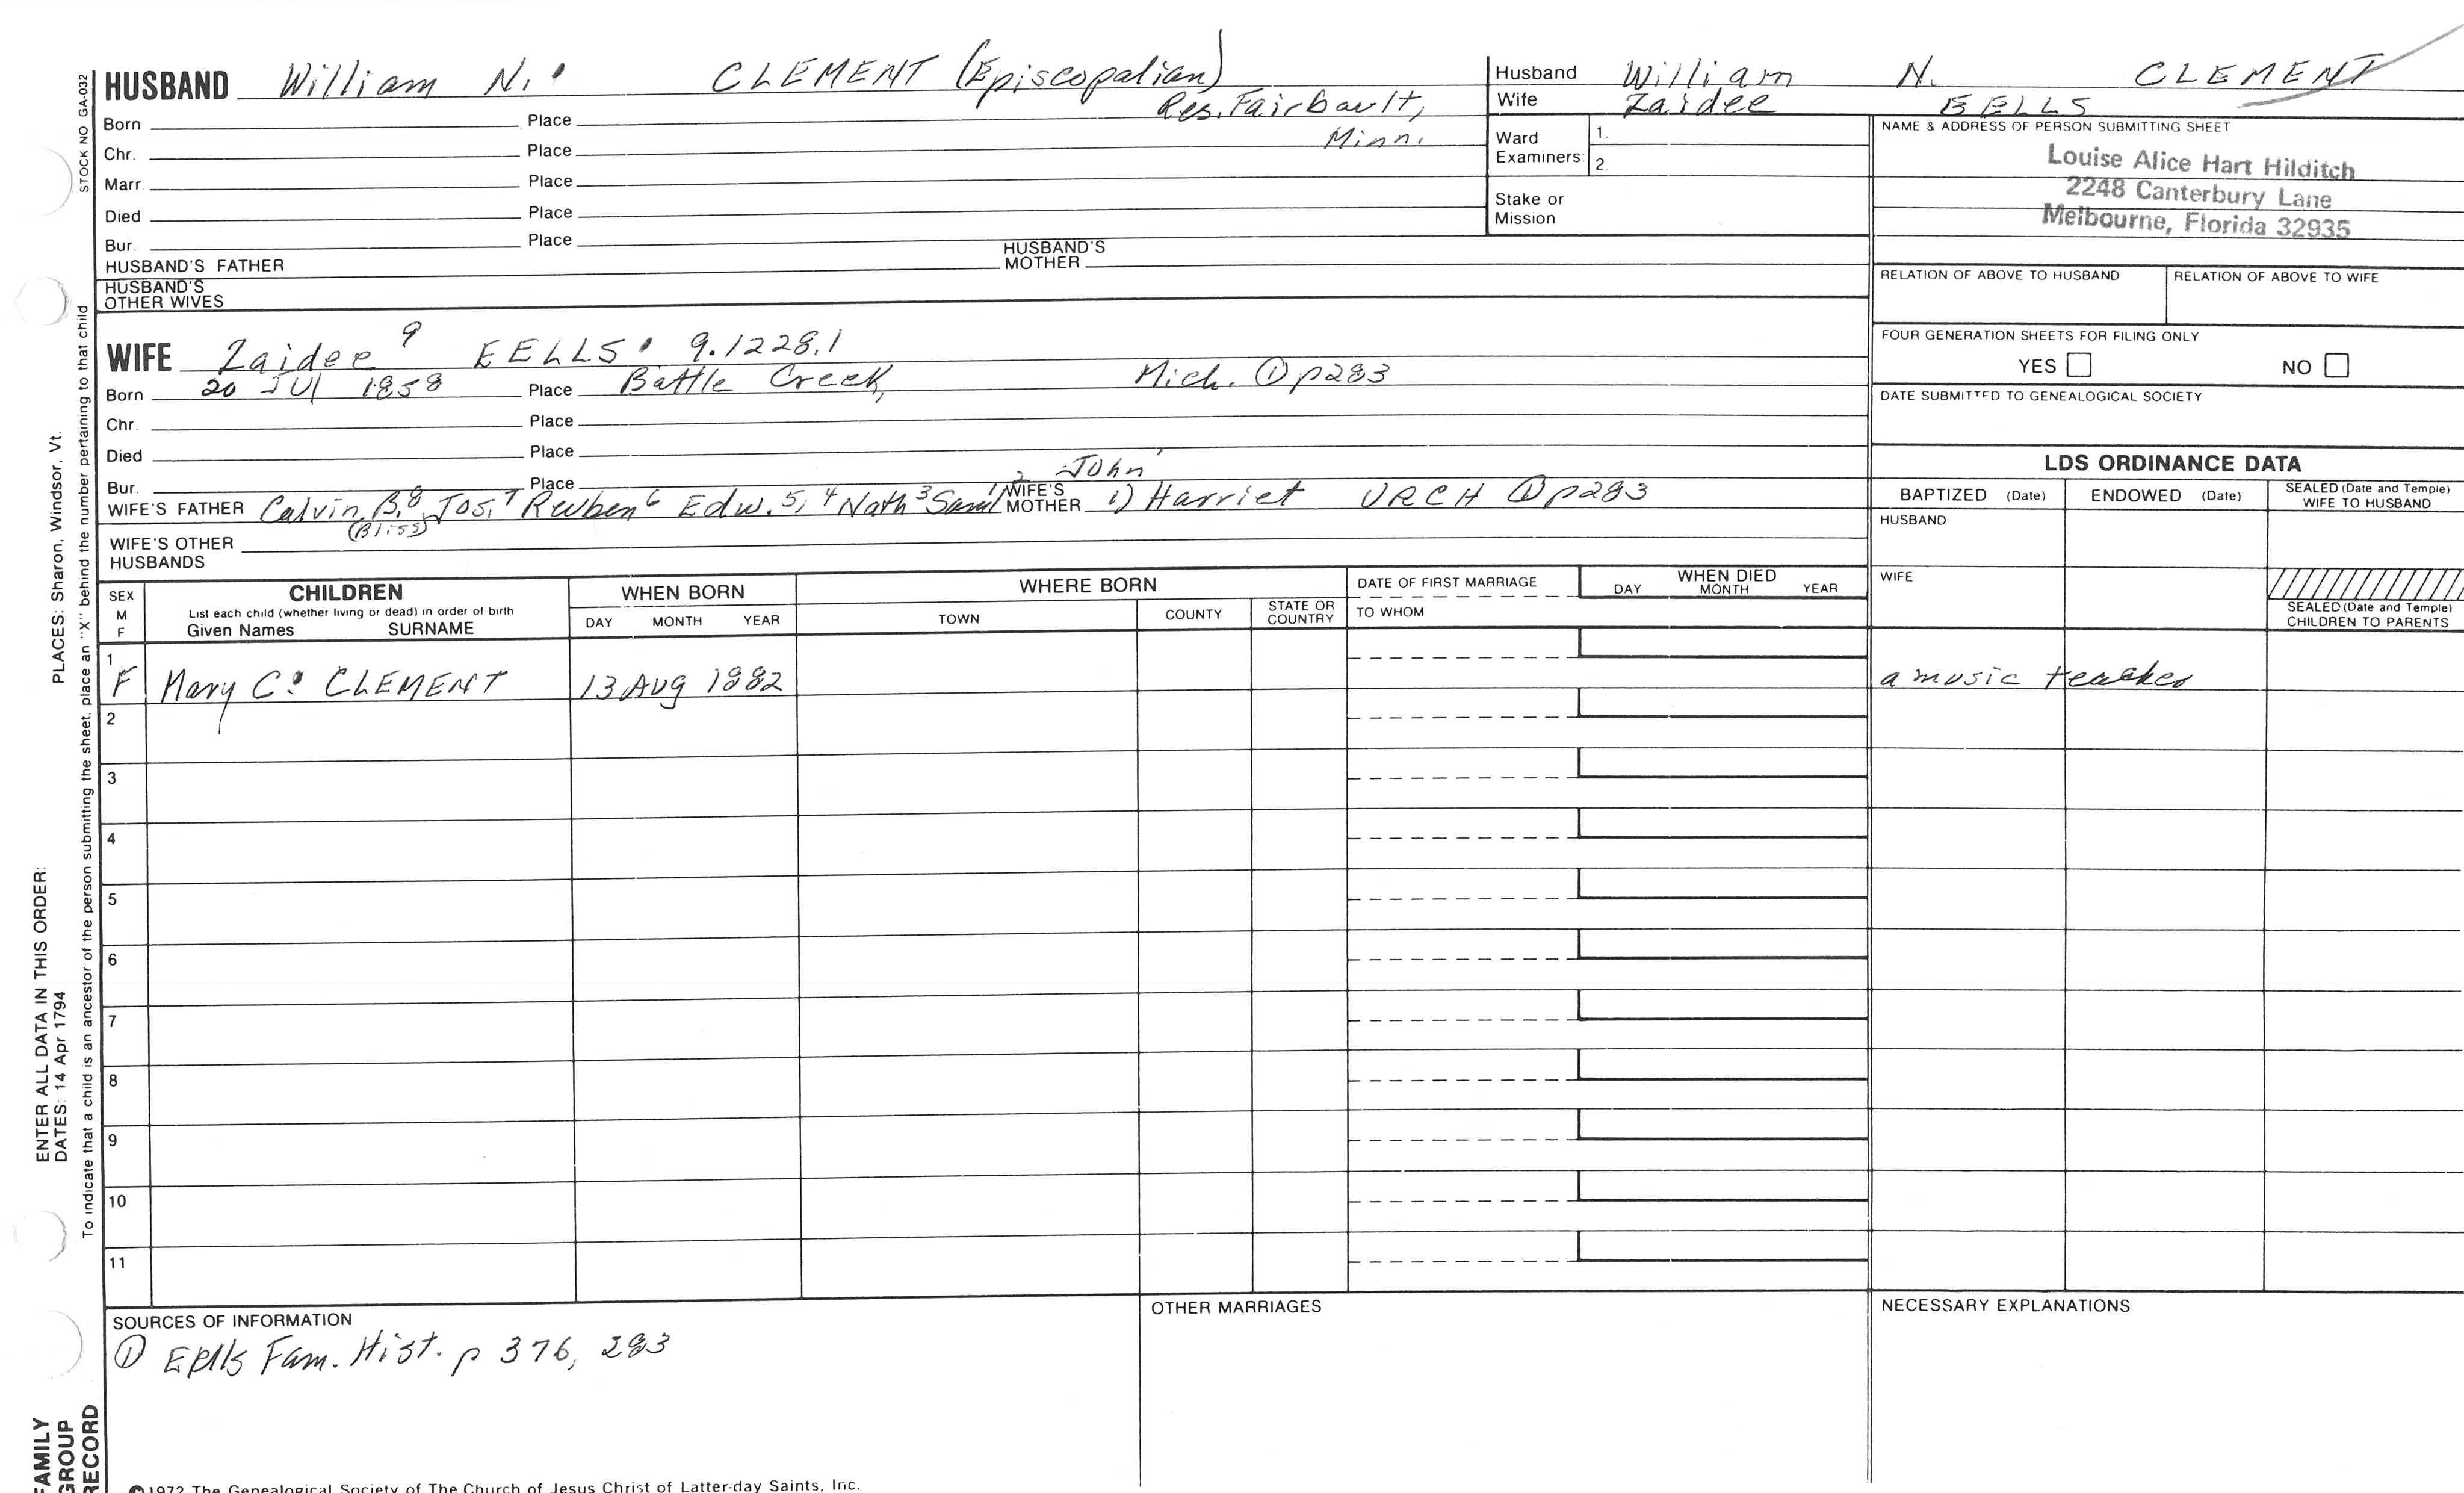 HUSBAND William N. CLEMENT (Episcopalian)
Res. Fairbault,
Minn.
Born Place
Chr. Place
Marr. Place
Died Place
Bur. Place
HUSBAND'S FATHER HUSBAND'S MOTHER
HUSBAND'S OTHER WIVES
Husband William N. CLEMENT
Wife Zaidee EELLS
Ward Examiners: 1.
2.
Stake or Mission
NAME & ADDRESS OF PERSON SUBMITTING SHEET
Louise Alice Hart Hilditch
2248 Canterbury Lane
Melbourne, Florida 32935
RELATION OF ABOVE TO HUSBAND RELATION OF ABOVE TO WIFE
FOUR GENERATION SHEETS FOR FILING ONLY
YES NO
DATE SUBMITTED TO GENEALOGICAL SOCIETY
WIFE Zaidee 9 EELLS 9.1228.1
Born 20 JUl 1858 Place Battle Creek, Mich. ① p283
Chr. Place
Died Place
Bur. Place
2 John 1
WIFE'S FATHER Calvin B.8 Jos.7 Reuben6 Edw.5,4 Nath3 Saml WIFE'S MOTHER 1) Harriet URCH ① p283
(Bliss)
WIFE'S OTHER HUSBANDS
LDS ORDINANCE DATA
BAPTIZED (Date) ENDOWED (Date) SEALED (Date and Temple) WIFE TO HUSBAND
HUSBAND
WIFE
SEALED (Date and Temple) CHILDREN TO PARENTS
SEX M F
CHILDREN
List each child (whether living or dead) in order of birth
Given Names SURNAME
WHEN BORN
DAY MONTH YEAR
WHERE BORN
TOWN COUNTY STATE OR COUNTRY
DATE OF FIRST MARRIAGE
TO WHOM
WHEN DIED
DAY MONTH YEAR
1
F Mary C. CLEMENT 13 AUg 1882 a music teacher
2
3
4
5
6
7
8
9
10
11
SOURCES OF INFORMATION
① Eells Fam. Hist. p 376, 283
OTHER MARRIAGES
NECESSARY EXPLANATIONS
©1972 The Genealogical Society of The Church of Jesus Christ of Latter-day Saints, Inc.
STOCK NO GA-032
To indicate that a child is an ancestor of the person submitting the sheet, place an "X" behind the number pertaining to that child
PLACES: Sharon, Windsor, Vt.
ENTER ALL DATA IN THIS ORDER:
DATES: 14 Apr 1794
FAMILY
GROUP
RECORD